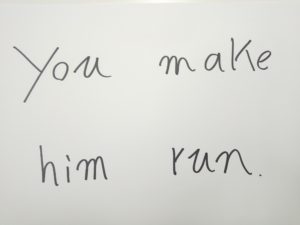 You make
him run.